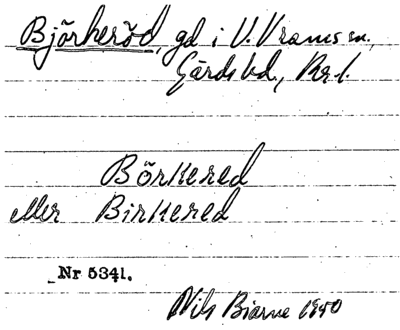 Björkeröd, gd i V. Vrams sn.,
Gärds hd., Kr. l.
Börkered
eller Birkered
Nr 5341.
Nils Bjarne 1950